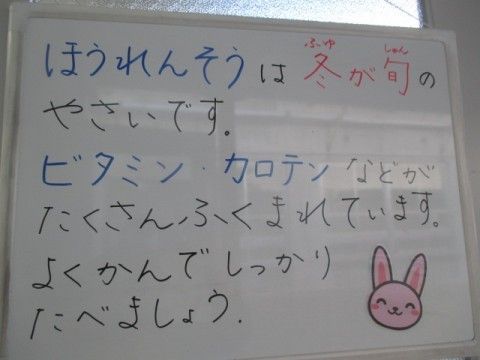 ほうれんそうは冬が旬の
やさいです。
ビタミン・カロテンなどが
たくさんふくまれています。
よくかんでしっかり
たべましょう.
ふゆ
しゅん